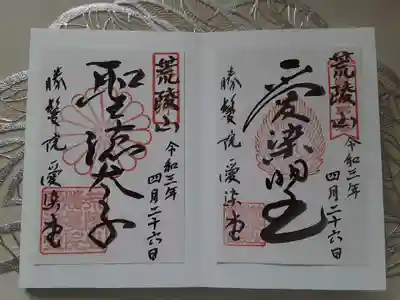 荒陵山
愛染明王
令和三年
四月二十六日
勝鬘院 愛染堂
荒陵山
聖徳太子
令和三年
四月二十六日
勝鬘院 愛染堂